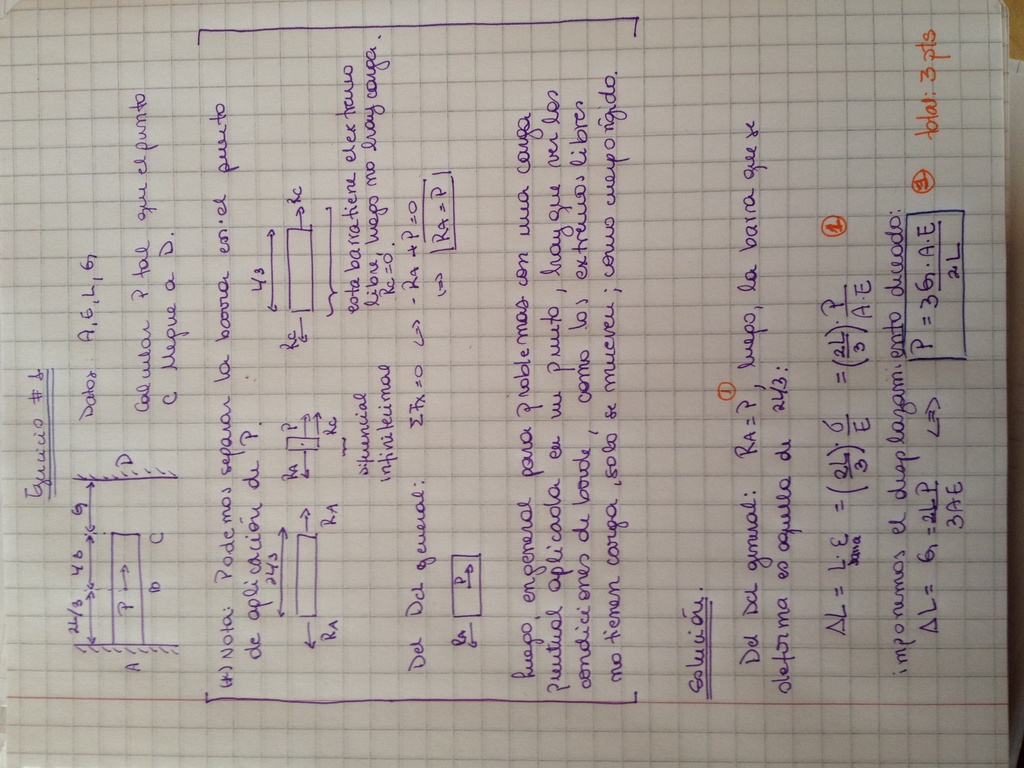 Ejercicio # 1
2L/3 L/3 G
P
A B C D
Datos: A, E, L, G
Calcular P tal que el punto
C llegue a D.
(*) Nota: Podemos separar la barra en el punto
de aplicación de P.
2L/3
RA RA
RA P RC
diferencial
infinitesimal
L/3
RC RC
esta barra tiene el extremo
libre, luego no hay carga.
RC=0.
Del Dcl general: ΣFx=0 <=> -RA+P=0
RA P
=> RA=P
Luego, en general para problemas con una carga
puntual aplicada en un punto, hay que ver las
condiciones de borde, como los extremos libres
no tienen carga, solo se mueven; como cuerpo rígido.
Solución.
Del Dcl general: RA=P, ① luego, la barra que se
deforma es aquella de 2L/3:
ΔL = L barra·ε = (2L/3)·σ/E = (2L/3)·P/A·E ①
imponemos el desplazamiento dado:
ΔL = G = 2LP/3AE <=> P = 3G·A·E/2L ① total: 3 pts